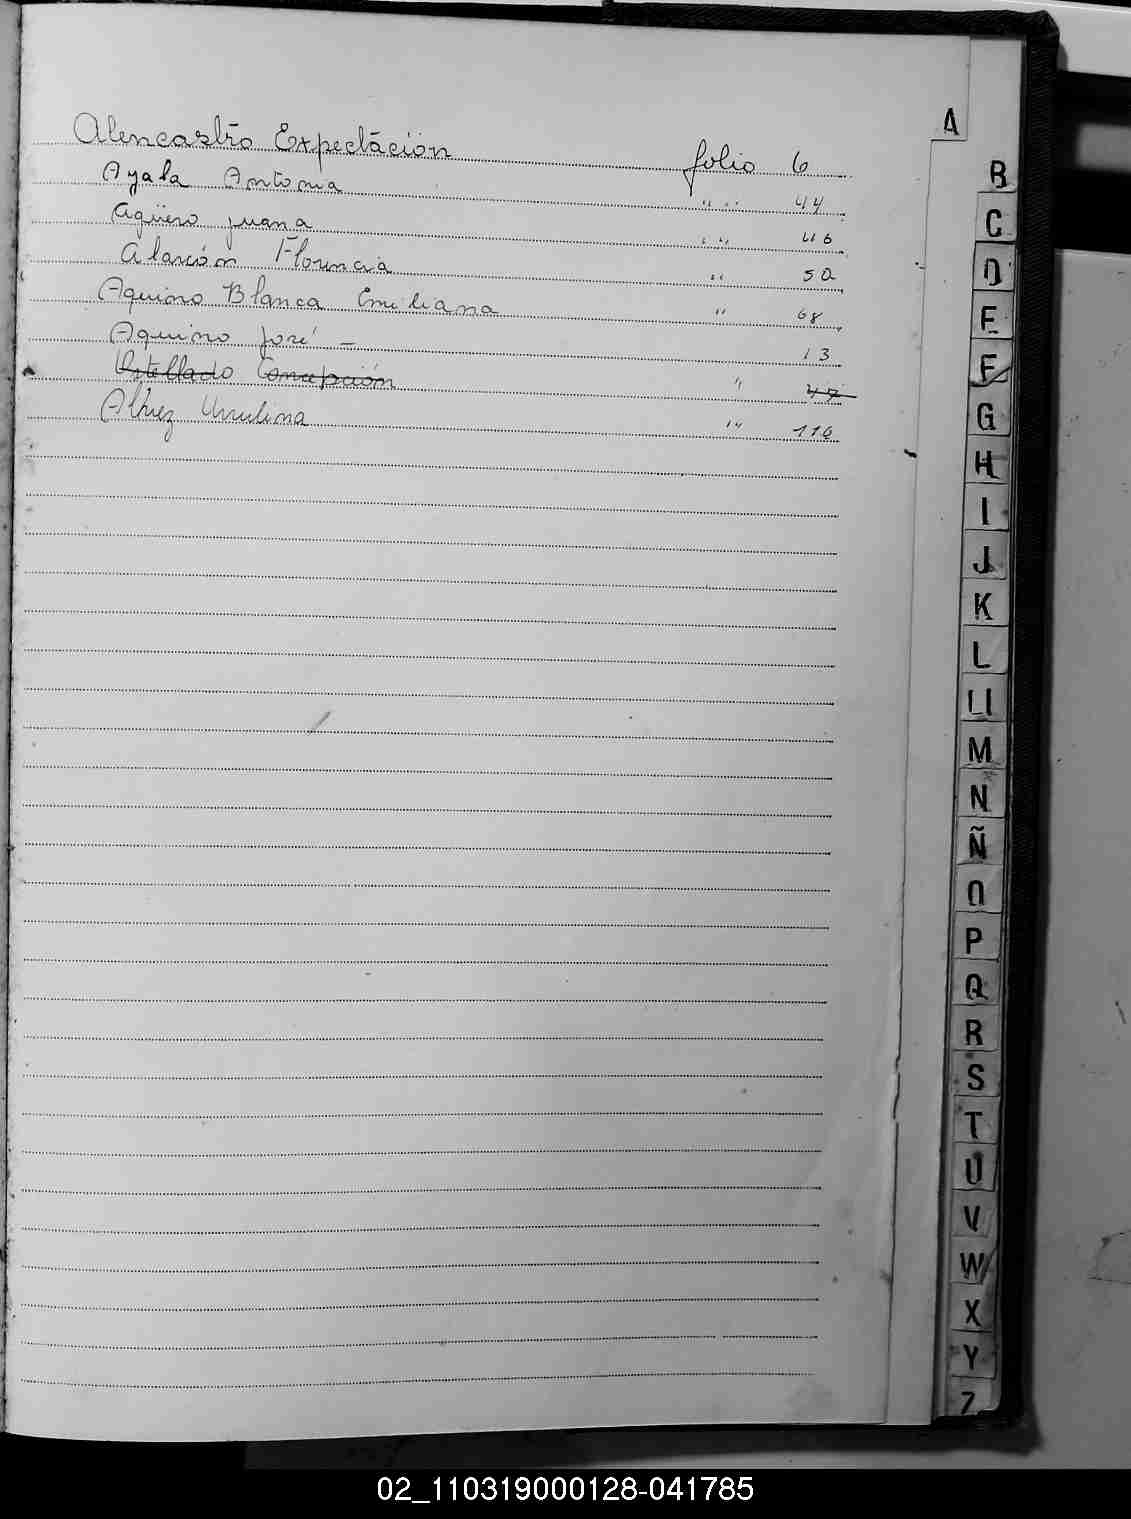 Alencastro Expectación folio 6
Ayala Antonia " " 44
Agüero Juana " " 46
Alarcón Florencia " 50
Aquino Blanca Emiliana " 68
Aquino José — 13
Concepción " 47
Alvez " 116
A
B
C
D
E
F
G
H
I
J
K
L
Ll
M
N
Ñ
O
P
Q
R
S
T
U
V
W
X
Y
Z
02_110319000128-041785